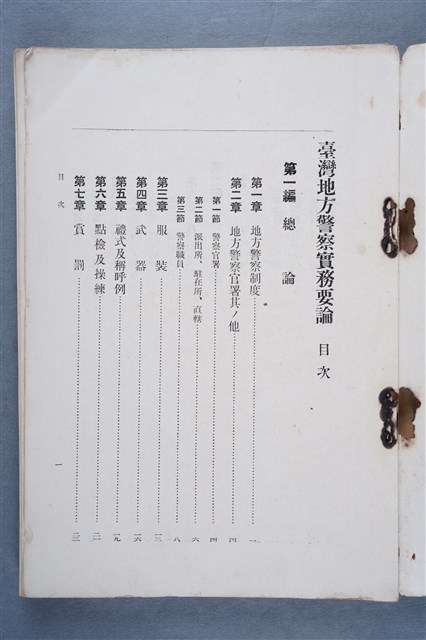 臺灣地方警察實務要論 目次
第一編 總論
第一章 地方警察制度……一
第二章 地方警察官署其ノ他……四
第一節 警察官署……四
第二節 派出所、駐在所、直轄……六
第三節 警察職員……八
第三章 服裝……一三
第四章 武器……一六
第五章 禮式及稱呼例……一九
第六章 點檢及操練……二一
第七章 賞罰
目次
一